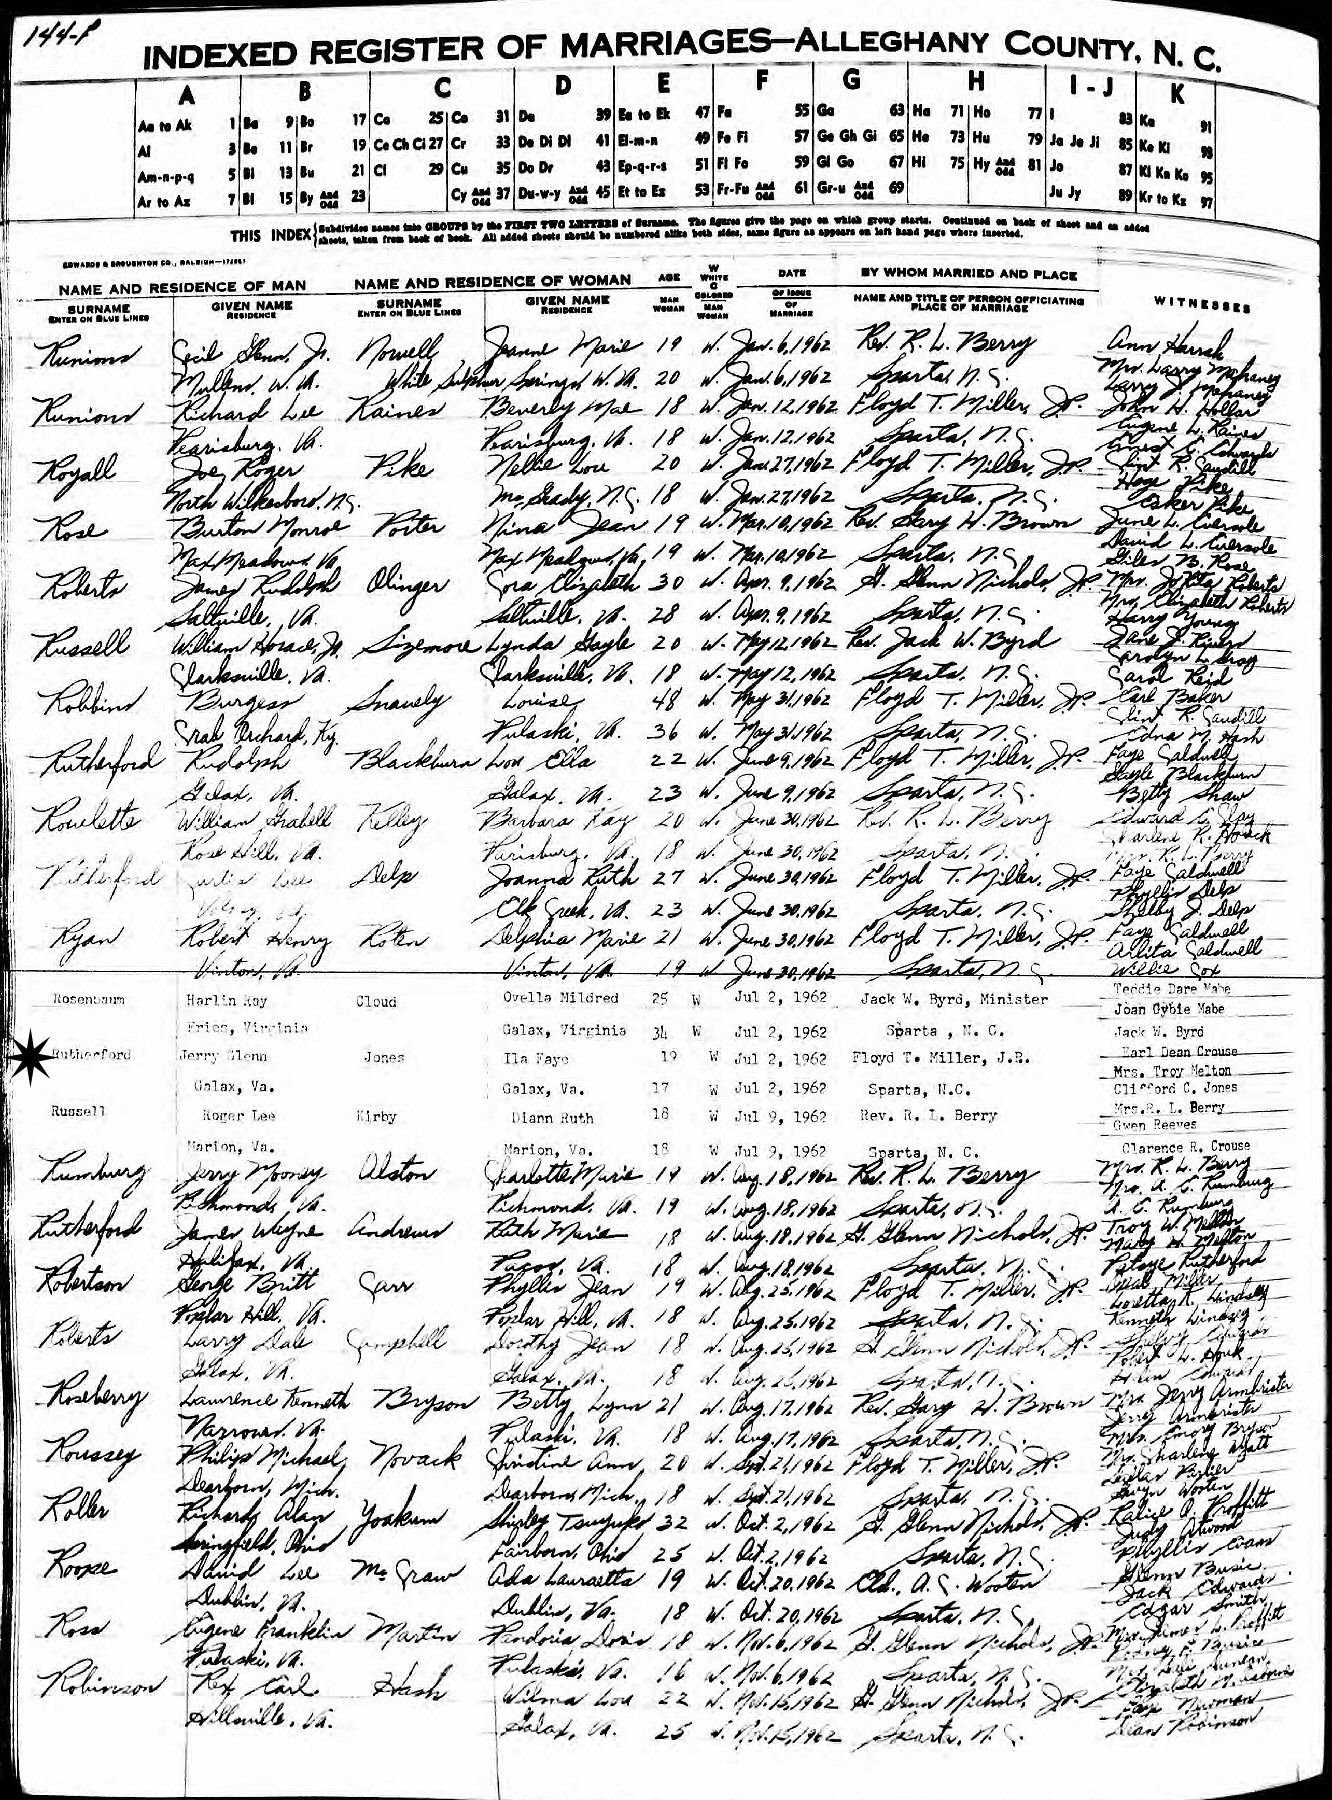 144-P
INDEXED REGISTER OF MARRIAGES—ALLEGHANY COUNTY, N. C.
A B C D E F G H I - J K
Aa to Ak 1 Ba 9 Bo 17 Ca 25 Co 31 Da 39 Ea to Ek 47 Fa 55 Ga 63 Ha 71 Ho 77 I 83 Ka 91
Al 3 Be 11 Br 19 Ce Ch Ci 27 Cr 33 De Di Dl 41 El-m-n 49 Fe Fi 57 Ge Gh Gi 65 He 73 Hu 79 Ja Je Ji 85 Ke Ki 93
Am-n-p-q 5 Bi 13 Bu 21 Cl 29 Cu 35 Do Dr 43 Ep-q-r-s 51 Fl Fo 59 Gl Go 67 Hi 75 Hy And Odd 81 Jo 87 Kl Kn Ko 95
Ar to Az 7 Bl 15 By And Odd 23 Cy And Odd 37 Du-w-y And Odd 45 Et to Ez 53 Fr-Fu And Odd 61 Gr-u And Odd 69 Ju Jy 89 Kr to Kz 97
THIS INDEX Subdivides names into GROUPS by the FIRST TWO LETTERS of Surname. The figures give the page on which group starts. Continued on back of sheet and on added
sheets, taken from back of book. All added sheets should be numbered alike both sides, same figure as appears on left hand page where inserted.
EDWARDS & BROUGHTON CO., RALEIGH
NAME AND RESIDENCE OF MAN NAME AND RESIDENCE OF WOMAN AGE W WHITE C COLORED DATE BY WHOM MARRIED AND PLACE
SURNAME GIVEN NAME SURNAME GIVEN NAME MAN MAN OF ISSUE NAME AND TITLE OF PERSON OFFICIATING WITNESSES
ENTER ON BLUE LINES RESIDENCE ENTER ON BLUE LINES RESIDENCE WOMAN WOMAN OF MARRIAGE PLACE OF MARRIAGE
Runions Cecil Glenn, Jr. Nowell Jeanne Marie 19 W. Jan. 6, 1962 Rev. R. L. Berry Ann Harrah
Mullens, W. Va. White Sulphur Springs, W. Va. 20 W. Jan. 6, 1962 Sparta, N. C. Mrs. Larry Mahaney
Larry J. Mahaney
Runions Richard Lee Raines Beverly Mae 18 W. Jan. 12, 1962 Floyd T. Miller, J.P. John H. Hollar
Pearisburg, Va. Pearisburg, Va. 18 W. Jan. 12, 1962 Sparta, N. C. Eugene L. Raines
Ernest C. Edwards
Royall Joe Roger Pike Nellie Lou 20 W. Jan. 27, 1962 Floyd T. Miller, J.P. Clint R. Caudill
North Wilkesboro, N.C. Mc Grady, N.C. 18 W. Jan. 27, 1962 Sparta, N. C. Hoge Pike
Esker Pike
Rose Burton Monroe Porter Nina Jean 19 W. Mar. 10, 1962 Rev. Gary W. Brown June L. Eversole
Max Meadows, Va. Max Meadows, Va. 19 W. Mar. 10, 1962 Sparta, N. C. David L. Eversole
Giles B. Rose
Roberts James Rudolph Olinger Cora Elizabeth 30 W. Apr. 9, 1962 G. Glenn Nichols, J.P. Mrs. JoRita Roberts
Saltville, Va. Saltville, Va. 28 W. Apr. 9, 1962 Sparta, N. C. Mrs. Elizabeth Roberts
Harry Young
Russell William Horace, Jr. Sizemore Lynda Gayle 20 W. May 12, 1962 Rev. Jack W. Byrd
Clarksville, Va. Clarksville, Va. 18 W. May 12, 1962 Sparta, N. C. Carolyn L.
Carol Reid
Robbins Burgess Snavely Louise 48 W. May 31, 1962 Floyd T. Miller, J.P. Earl Baker
Crab Orchard, Ky. Pulaski, Va. 36 W. May 31, 1962 Sparta, N. C. Clint R. Caudill
Edna M. Hash
Rutherford Rudolph Blackburn Lou Ella 22 W. June 9, 1962 Floyd T. Miller, J.P. Faye Caldwell
Galax, Va. Galax, Va. 23 W. June 9, 1962 Sparta, N. C. Gayle Blackburn
Betty Shaw
Roulette William Grabell Kelley Barbara Kay 20 W. June 30, 1962 Rev. R. L. Berry Edward C. Clay
Rose Hill, Va. Parisburg, Va. 18 W. June 30, 1962 Sparta, N. C. Charlene R. Houck
Mrs. R. L. Berry
Rutherford Curtis Lee Delp Joanna Ruth 27 W. June 30, 1962 Floyd T. Miller, J.P. Faye Caldwell
Elk Creek, Va. 23 W. June 30, 1962 Sparta, N. C. Phyllis Delp
Shelby J. Delp
Ryan Robert Henry Roten Delphia Marie 21 W. June 30, 1962 Floyd T. Miller, J.P. Faye Caldwell
Vinton, Va. Vinton, Va. 19 W June 30, 1962 Sparta, N. C. Arlita Caldwell
Willie Cox
Rosenbaum Harlin Roy Cloud Ovella Mildred 25 W Jul 2, 1962 Jack W. Byrd, Minister Teddie Dare Mabe
Joan Oybie Mabe
Fries, Virginia Galax, Virginia 34 W Jul 2, 1962 Sparta , N. C. Jack W. Byrd
Rutherford Jerry Glenn Jones Ila Faye 19 W Jul 2, 1962 Floyd T. Miller, J.P. Earl Dean Crouse
Mrs. Troy Melton
Galax, Va. Galax, Va. 17 W Jul 2, 1962 Sparta, N.C. Clifford C. Jones
Russell Roger Lee Kirby Diann Ruth 18 W Jul 9, 1962 Rev. R. L. Berry Mrs.R. L. Berry
Gwen Reeves
Marion, Va. Marion, Va. 18 W Jul 9, 1962 Sparta, N. C. Clarence R. Crouse
Rumburg Jerry Mooney Alston Charlotte Marie 19 W. Aug. 18, 1962 Rev. R. L. Berry Mrs. R. L. Berry
Richmond, Va. Richmond, Va. 19 W. Aug. 18, 1962 Sparta, N. C. Mrs. A. C. Rumburg
A. C. Rumburg
Rutherford James Wayne Andrews Ruth Marie 18 W. Aug. 18, 1962 G. Glenn Nichols, J.P. Troy W. Melton
Halifax, Va. Paces, Va. 18 W. Aug. 18, 1962 Sparta, N. C. Mary H. Melton
Rutherford
Robertson George Britt Carr Phyllis Jean 19 W. Aug. 25, 1962 Floyd T. Miller, J.P. Opal Miller
Poplar Hill, Va. Poplar Hill, Va. 18 W. Aug. 25, 1962 Sparta, N. C. Loretta K. Lindsey
Kenneth Lindsey
Roberts Larry Dale Campbell Dorothy Jean 18 W. Aug. 25, 1962 G. Glenn Nichols, J.P.
Galax, Va. Galax, Va. 18 W. Aug. 25, 1962 Sparta, N. C. Robert L. Houk
Roseberry Laurence Kenneth Bryson Betty Lynn 21 W. Aug. 17, 1962 Rev. Gary W. Brown Mrs. Jerry Armbrister
Narrows, Va. Pulaski, Va. 18 W. Aug. 17, 1962 Sparta, N. C. Jerry Armbrister
Mrs. Emory Bryson
Roussey Philip Michael Novack Christine Ann 20 W. Sept. 21, 1962 Floyd T. Miller, J.P. Mrs. Charlene Wyatt
Dearborn, Mich. Dearborn, Mich. 18 W. Sept. 21, 1962 Sparta, N. C. Dellar Parlier
Gwyn Wooten
Roller Richard Alan Yoakum Shirley Tsuyuko 32 W. Oct. 2, 1962 G. Glenn Nichols, J.P. Proffitt
Springfield, Ohio Fairborn, Ohio 25 W. Oct. 2, 1962 Sparta, N. C. Judy Atwood
Phyllis Evans
Roope David Lee McGraw Ada Lauraetta 19 W. Oct. 20, 1962 Eld. A. C. Wooten Glenn Busic
Dublin, Va. Dublin, Va. 18 W. Oct. 20, 1962 Sparta, N. C. Jack Edwards
Edgar Smith
Ross Eugene Franklin Martin Pandoria Doris 18 W. Nov. 6, 1962 G. Glenn Nichols, J.P. Mrs. James L. Proffitt
Pulaski, Va. Pulaski, Va. 16 W. Nov. 6, 1962 Sparta, N. C.
Robinson Rex Carl Hash Wilma Lou 22 W. Nov. 15, 1962 G. Glenn Nichols, J.P. Elizabeth M.
Hillsville, Va. Galax, Va. 25 W. Nov. 15, 1962 Sparta, N. C. Faye Newman
Dean Robinson